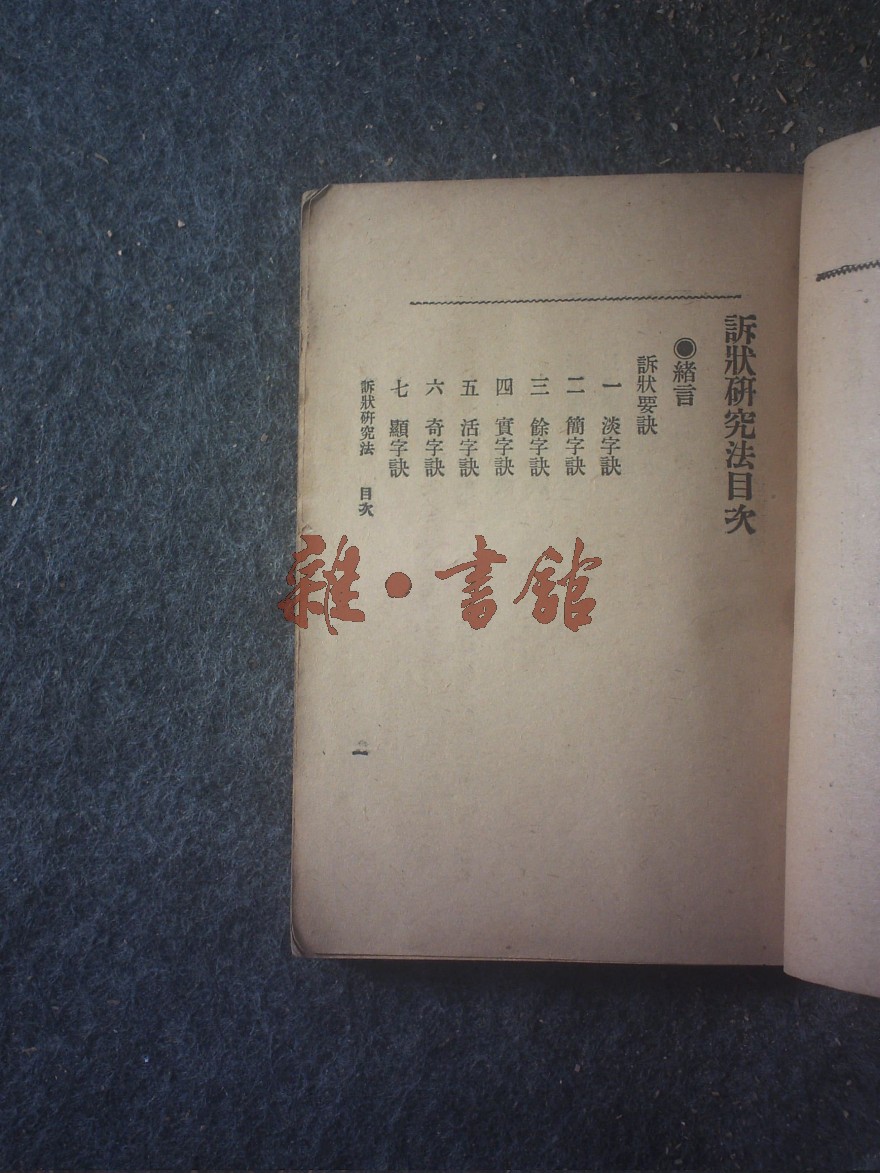 訴狀研究法目次
◉緒言
訴狀要訣
一 淡字訣
二 簡字訣
三 餘字訣
四 實字訣
五 活字訣
六 奇字訣
七 顯字訣
訴狀研究法 目次
一
雜·書館